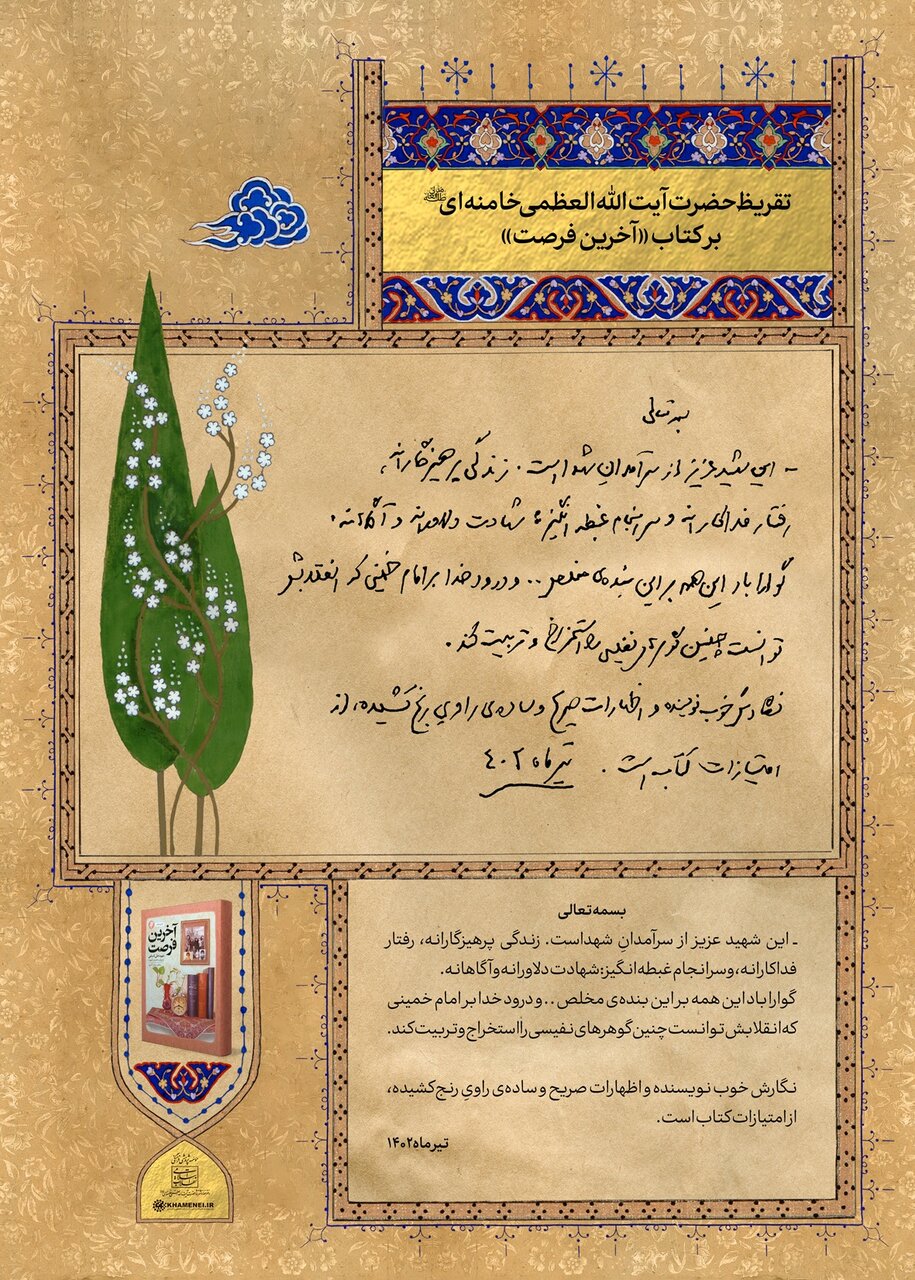 تقریظ حضرت آیت الله العظمی خامنه ای
بر کتاب ((آخرین فرصت))
بسمه تعالی
- این شهید عزیز از سرآمدان شهداست. زندگی پرهیزگارانه،
رفتار فداکارانه و سرانجام غبطه انگیز: شهادت دلاورانه و آگاهانه.
گوارا باد این همه بر این بنده‌ی مخلص .. و درود خدا بر امام خمینی که انقلابش
توانست چنین گوهرهای نفیسی را استخراج و تربیت کند.
نگارش خوب نویسنده و اظهارات صریح و ساده‌ی راویِ رنج کشیده، از
امتیازات کتاب است. تیرماه ۴۰۲
بسمه تعالی
- این شهید عزیز از سرآمدانِ شهداست. زندگی پرهیزگارانه، رفتار
فداکارانه، و سرانجام غبطه انگیز: شهادت دلاورانه و آگاهانه.
گوارا باد این همه بر این بنده‌ی مخلص .. و درود خدا بر امام خمینی
که انقلابش توانست چنین گوهرهای نفیسی را استخراج و تربیت کند.
نگارش خوب نویسنده و اظهارات صریح و ساده‌ی راویِ رنج کشیده،
از امتیازات کتاب است.
تیرماه ۱۴۰۲
آخرین
فرصت
KHAMENEI.IR